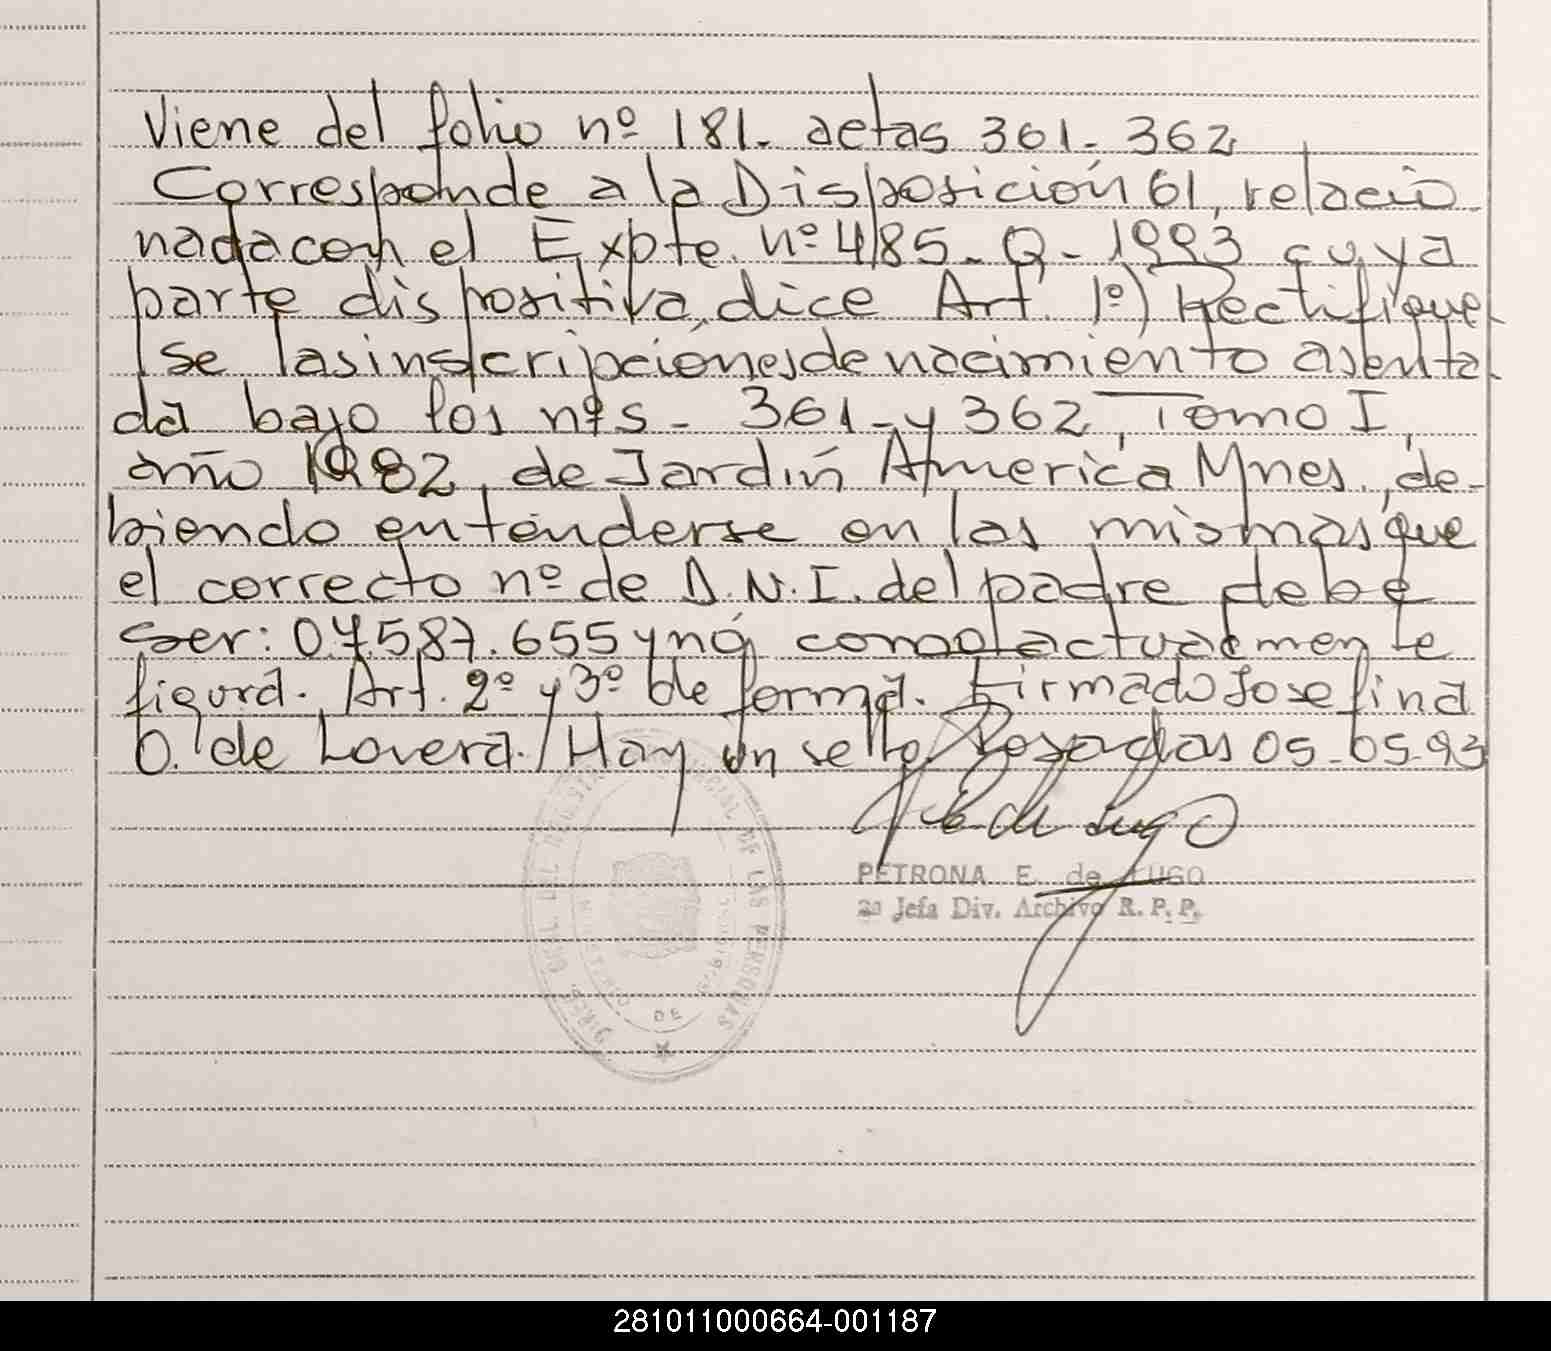 Viene del folio nº 181. actas 361-362
Corresponde a la Disposición 61, relacio
nada con el Expte. nº 485-Q-1993 cuya
parte dispositiva, dice Art. 1º) Rectifíque
se las inscripciones de nacimiento asenta
da bajo los nºs - 361 - y 362, Tomo I,
año 1982, de Jardín America Mnes., de-
biendo entenderse en las mismas que
el correcto nº de D.N.I. del padre debe
ser: 07.587.655 y no como actualmente
figura. Art. 2º y 3º de forma. Firmado Josefina
O. de Lovera. / Hay un sello Posadas 05-05-93
PETRONA E. de LUGO
2a Jefa Div. Archivo R. P. P.
DIREC. GRAL. DEL REGISTRO PROVINCIAL DE LAS PERSONAS
MINISTERIO DE GOBIERNO
281011000664-001187